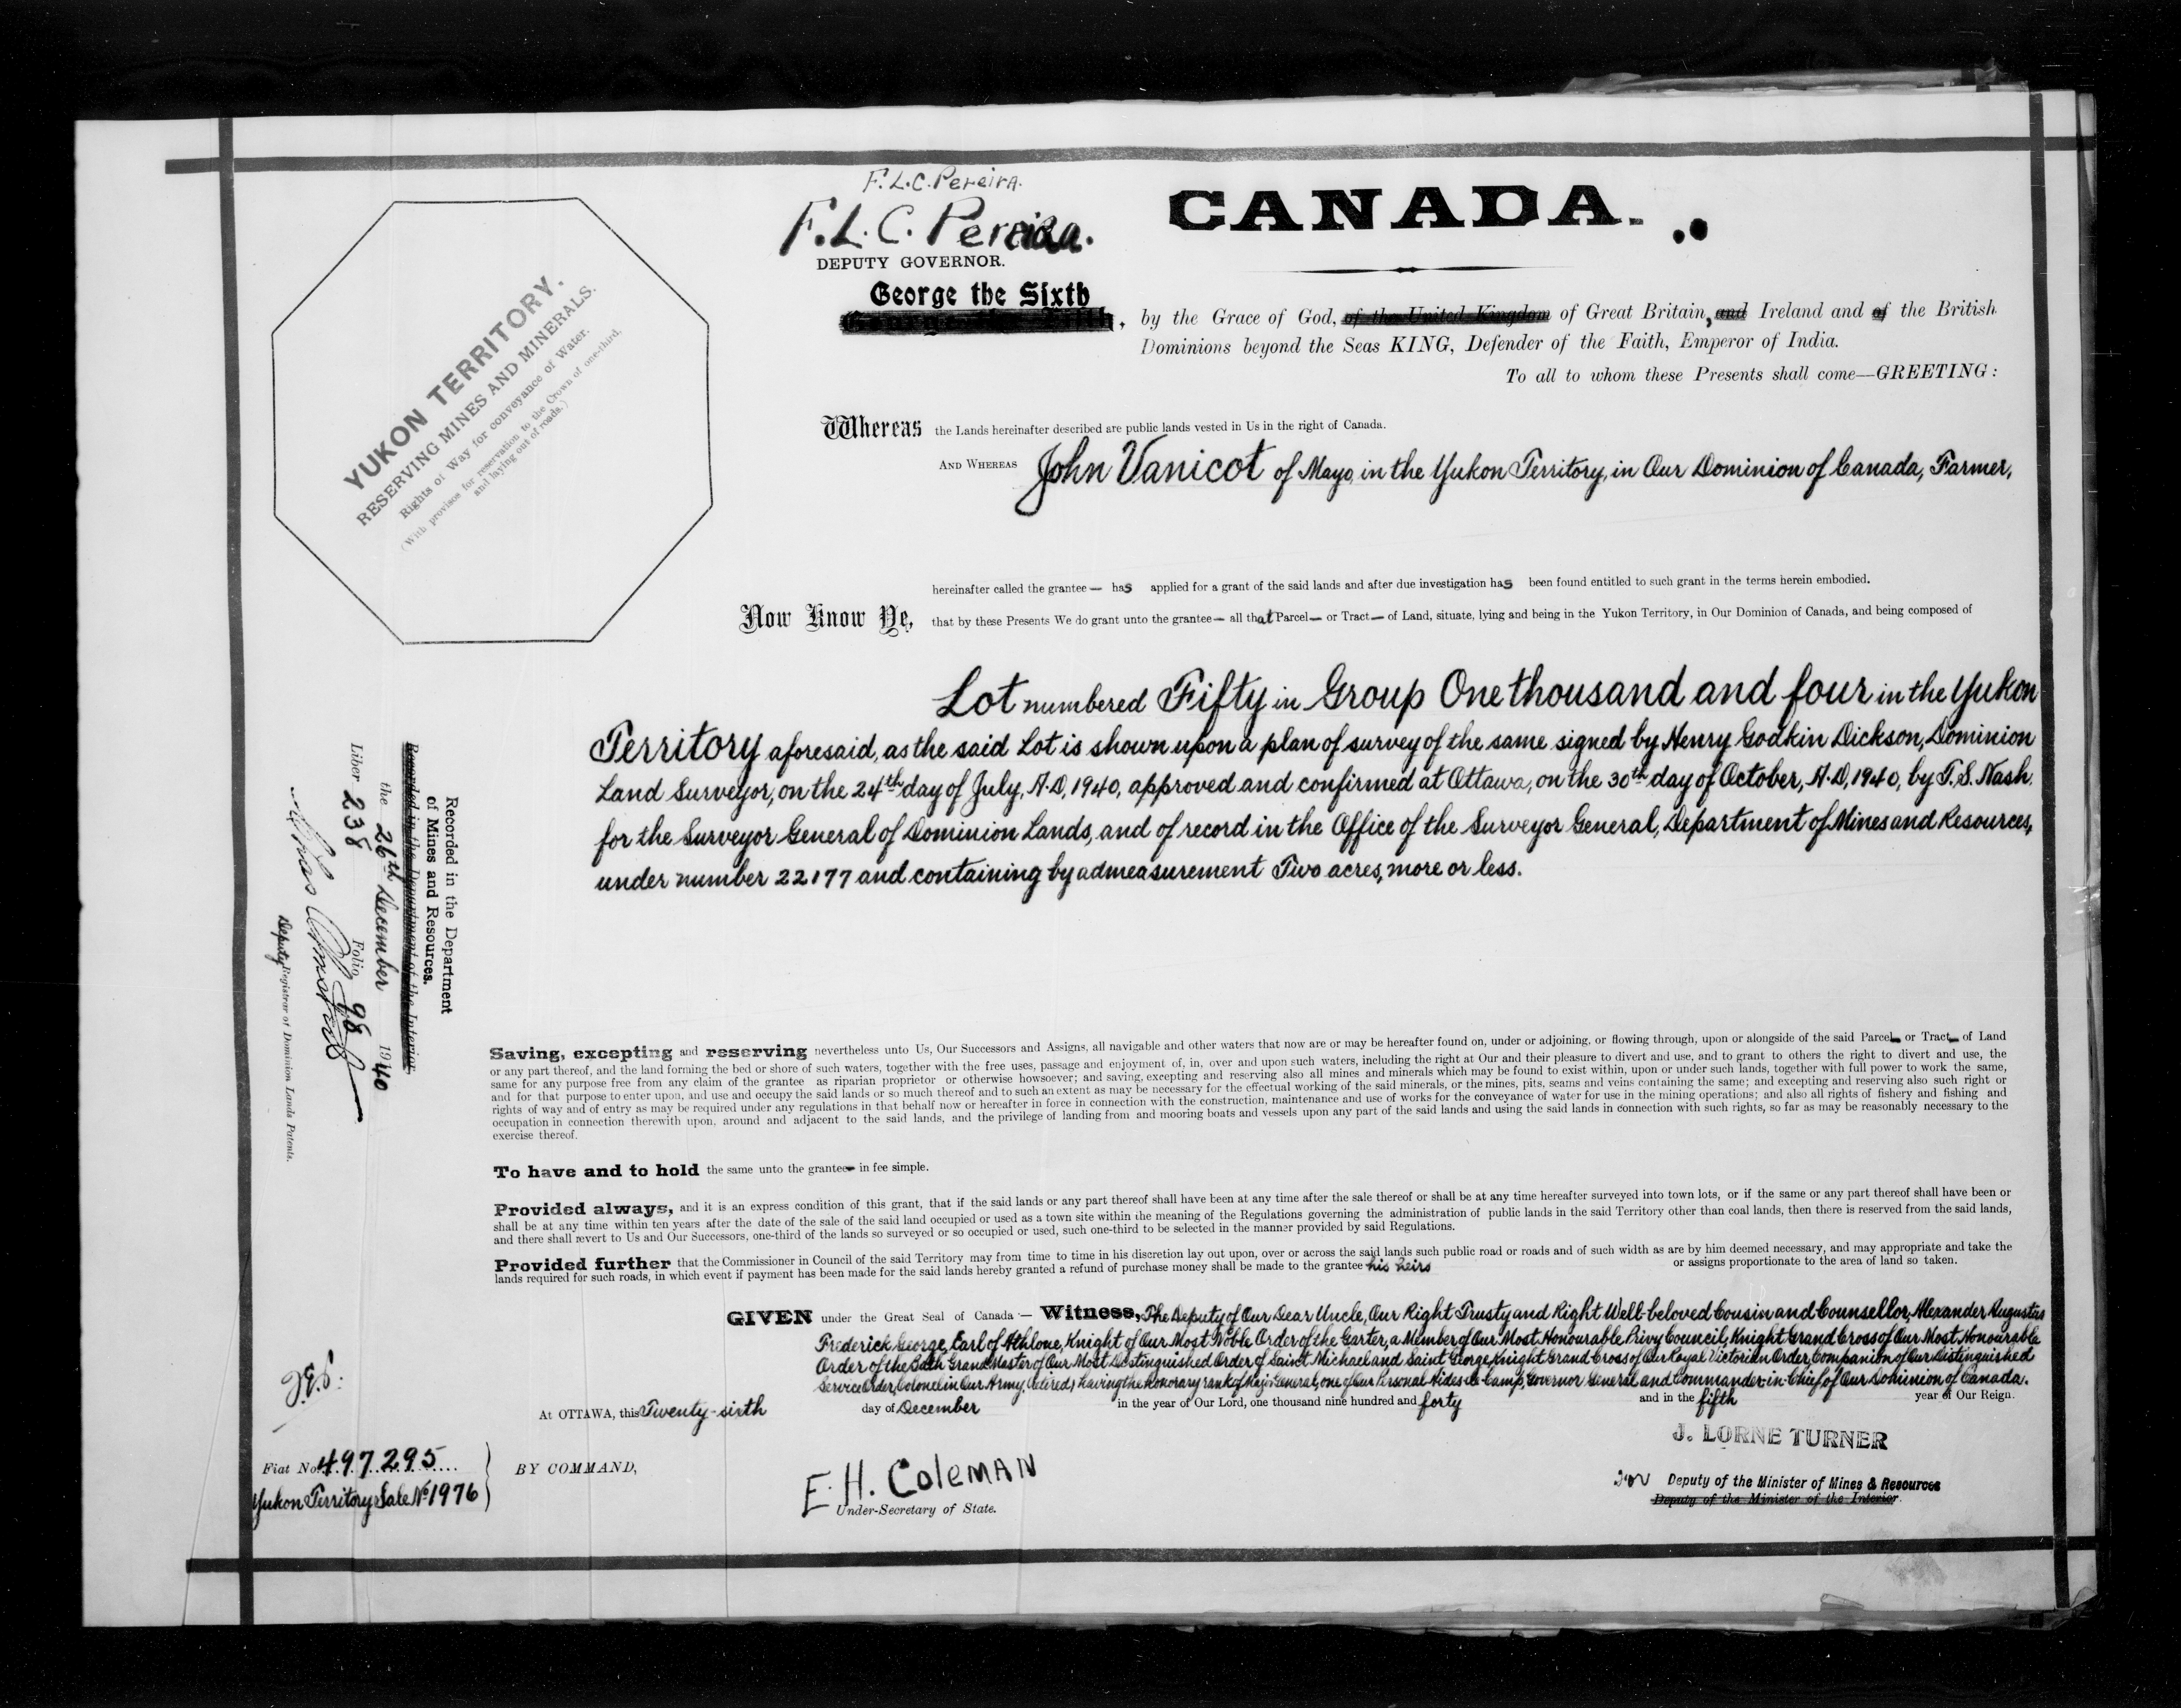 F.L.C. Pereira.
F.L.C. Pereira.
DEPUTY GOVERNOR.
CANADA.
George the Sixth
George the Fifth, by the Grace of God, of the United Kingdom of Great Britain, and Ireland and of the British
Dominions beyond the Seas KING, Defender of the Faith, Emperor of India.
To all to whom these Presents shall come—GREETING:
YUKON TERRITORY.
RESERVING MINES AND MINERALS.
Rights of Way for conveyance of Water.
(With provisos for reservation to the Crown of one-third,
and laying out of roads.)
Whereas the Lands hereinafter described are public lands vested in Us in the right of Canada.
AND WHEREAS John Vanicot of Mayo, in the Yukon Territory, in Our Dominion of Canada, Farmer,
hereinafter called the grantee— has applied for a grant of the said lands and after due investigation has been found entitled to such grant in the terms herein embodied.
Now Know Ye, that by these Presents We do grant unto the grantee— all that Parcel— or Tract— of Land, situate, lying and being in the Yukon Territory, in Our Dominion of Canada, and being composed of
Lot numbered Fifty in Group One thousand and four in the Yukon
Territory aforesaid, as the said Lot is shown upon a plan of survey of the same signed by Henry Godkin Dickson, Dominion
Land Surveyor, on the 24th day of July, A.D, 1940, approved and confirmed at Ottawa, on the 30th day of October, A.D, 1940, by T.S. Nash.
for the Surveyor General of Dominion Lands, and of record in the Office of the Surveyor General, Department of Mines and Resources,
under number 22177 and containing by admeasurement Two acres, more or less.
Recorded in the Department
of Mines and Resources.
Recorded in the Department of the Interior
the 26th December 1940
Liber 238 Folio 98
Deputy Registrar of Dominion Lands Patents.
Saving, excepting and reserving nevertheless unto Us, Our Successors and Assigns, all navigable and other waters that now are or may be hereafter found on, under or adjoining, or flowing through, upon or alongside of the said Parcel— or Tract— of Land
or any part thereof, and the land forming the bed or shore of such waters, together with the free uses, passage and enjoyment of, in, over and upon such waters, including the right at Our and their pleasure to divert and use, and to grant to others the right to divert and use, the
same for any purpose free from any claim of the grantee as riparian proprietor or otherwise howsoever; and saving, excepting and reserving also all mines and minerals which may be found to exist within, upon or under such lands, together with full power to work the same,
and for that purpose to enter upon, and use and occupy the said lands or so much thereof and to such an extent as may be necessary for the effectual working of the said minerals, or the mines, pits, seams and veins containing the same; and excepting and reserving also such right or
rights of way and of entry as may be required under any regulations in that behalf now or hereafter in force in connection with the construction, maintenance and use of works for the conveyance of water for use in the mining operations; and also all rights of fishery and fishing and
occupation in connection therewith upon, around and adjacent to the said lands, and the privilege of landing from and mooring boats and vessels upon any part of the said lands and using the said lands in connection with such rights, so far as may be reasonably necessary to the
exercise thereof.
To have and to hold the same unto the grantee— in fee simple.
Provided always, and it is an express condition of this grant, that if the said lands or any part thereof shall have been at any time after the sale thereof or shall be at any time hereafter surveyed into town lots, or if the same or any part thereof shall have been or
shall be at any time within ten years after the date of the sale of the said land occupied or used as a town site within the meaning of the Regulations governing the administration of public lands in the said Territory other than coal lands, then there is reserved from the said lands,
and there shall revert to Us and Our Successors, one-third of the lands so surveyed or so occupied or used, such one-third to be selected in the manner provided by said Regulations.
Provided further that the Commissioner in Council of the said Territory may from time to time in his discretion lay out upon, over or across the said lands such public road or roads and of such width as are by him deemed necessary, and may appropriate and take the
lands required for such roads, in which event if payment has been made for the said lands hereby granted a refund of purchase money shall be made to the grantee his heirs or assigns proportionate to the area of land so taken.
GIVEN under the Great Seal of Canada — Witness, The Deputy of Our Dear Uncle, Our Right Trusty and Right Well-beloved Cousin and Counsellor, Alexander Augustus
Frederick George, Earl of Athlone, Knight of Our Most Noble Order of the Garter, a Member of Our Most Honourable Privy Council, Knight Grand Cross of Our Most Honourable
Order of the Bath Grand Master of Our Most Distinguished Order of Saint Michael and Saint George, Knight Grand Cross of Our Royal Victorian Order, Companion of Our Distinguished
Service Order, Colonel in Our Army, (retired) having the honorary rank of Major General, one of Our Personal Aides-de-Camp, Governor General and Commander-in-Chief of Our Dominion of Canada.
At OTTAWA, this Twenty-sixth day of December in the year of Our Lord, one thousand nine hundred and forty and in the fifth year of Our Reign.
Fiat No. 497295
Yukon Territory Sale No 1976
BY COMMAND,
E.H. Coleman
Under-Secretary of State.
J. LORNE TURNER
for Deputy of the Minister of Mines & Resources
Deputy of the Minister of the Interior.